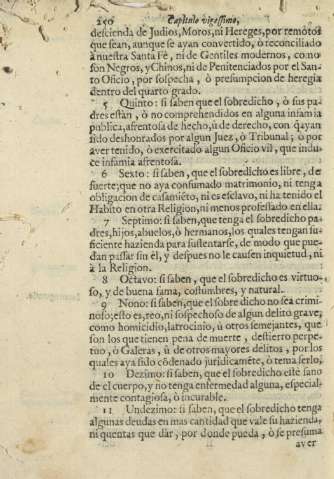 250 Capitulo vigessimo,
descienda de Judios, Moros, ni Hereges, por remotos
que sean, aunque se ayan convertido, ò reconciliado
à nuestra Santa Fè, ni de Gentiles modernos, como
son Negros, y Chinos, ni de Penitenciados por el San-
to Oficio, por sospecha, ò presumpcion de heregia
dentro del quarto grado.
5 Quinto: si saben que el sobredicho, ò sus pa-
dres estàn, ò no comprehendidos en alguna infamia
publica, afrentosa de hecho, ù de derecho, con q̃ayan
sido deshonrados por algun Juez, ò Tribunal; ò por
aver tenido, ò exercitado algun Oficio vil, que indu-
ce infamia afrentosa.
6 Sexto: si saben, que el sobredicho es libre, de
suerte; que no aya consumado matrimonio, ni tenga
obligacion de casamiẽto, ni es esclavo, ni ha tenido el
Habito en otra Religion, ni menos professado en ella:
7 Septimo: si saben, que tenga el sobredicho pa-
dres, hijos, abuelos, ò hermanos, los quales tengan su-
ficiente hazienda para sustentarse, de modo que pue-
dan passar sin èl, y despues no le causen inquietud, ni
à la Religion.
8 Octavo: si saben, que el sobredicho es virtuo-
so, y de buena fama, costumbres, y natural.
9 Nono: si saben, que el sobre dicho no sea crimi-
noso; esto es, reo, ni sospechoso de algun delito grave;
como homicidio, latrocinio, ù otros semejantes, que
son los que tienen pena de muerte, destierro perpe-
tuo, ò Galeras, ù de otros mayores delitos, por los
quales aya sido cõdenado juridicamẽte, ò tema serlo.
10 Dezimo: si saben, que el sobredicho estè sano
de el cuerpo, y no tenga enfermedad alguna, especial-
mente contagiosa, ò incurable.
11 Undezimo: si saben, que el sobredicho tenga
algunas deudas en mas cantidad que vale su hazienda,
ni quentas que dàr, por donde pueda, ò se presuma
aver